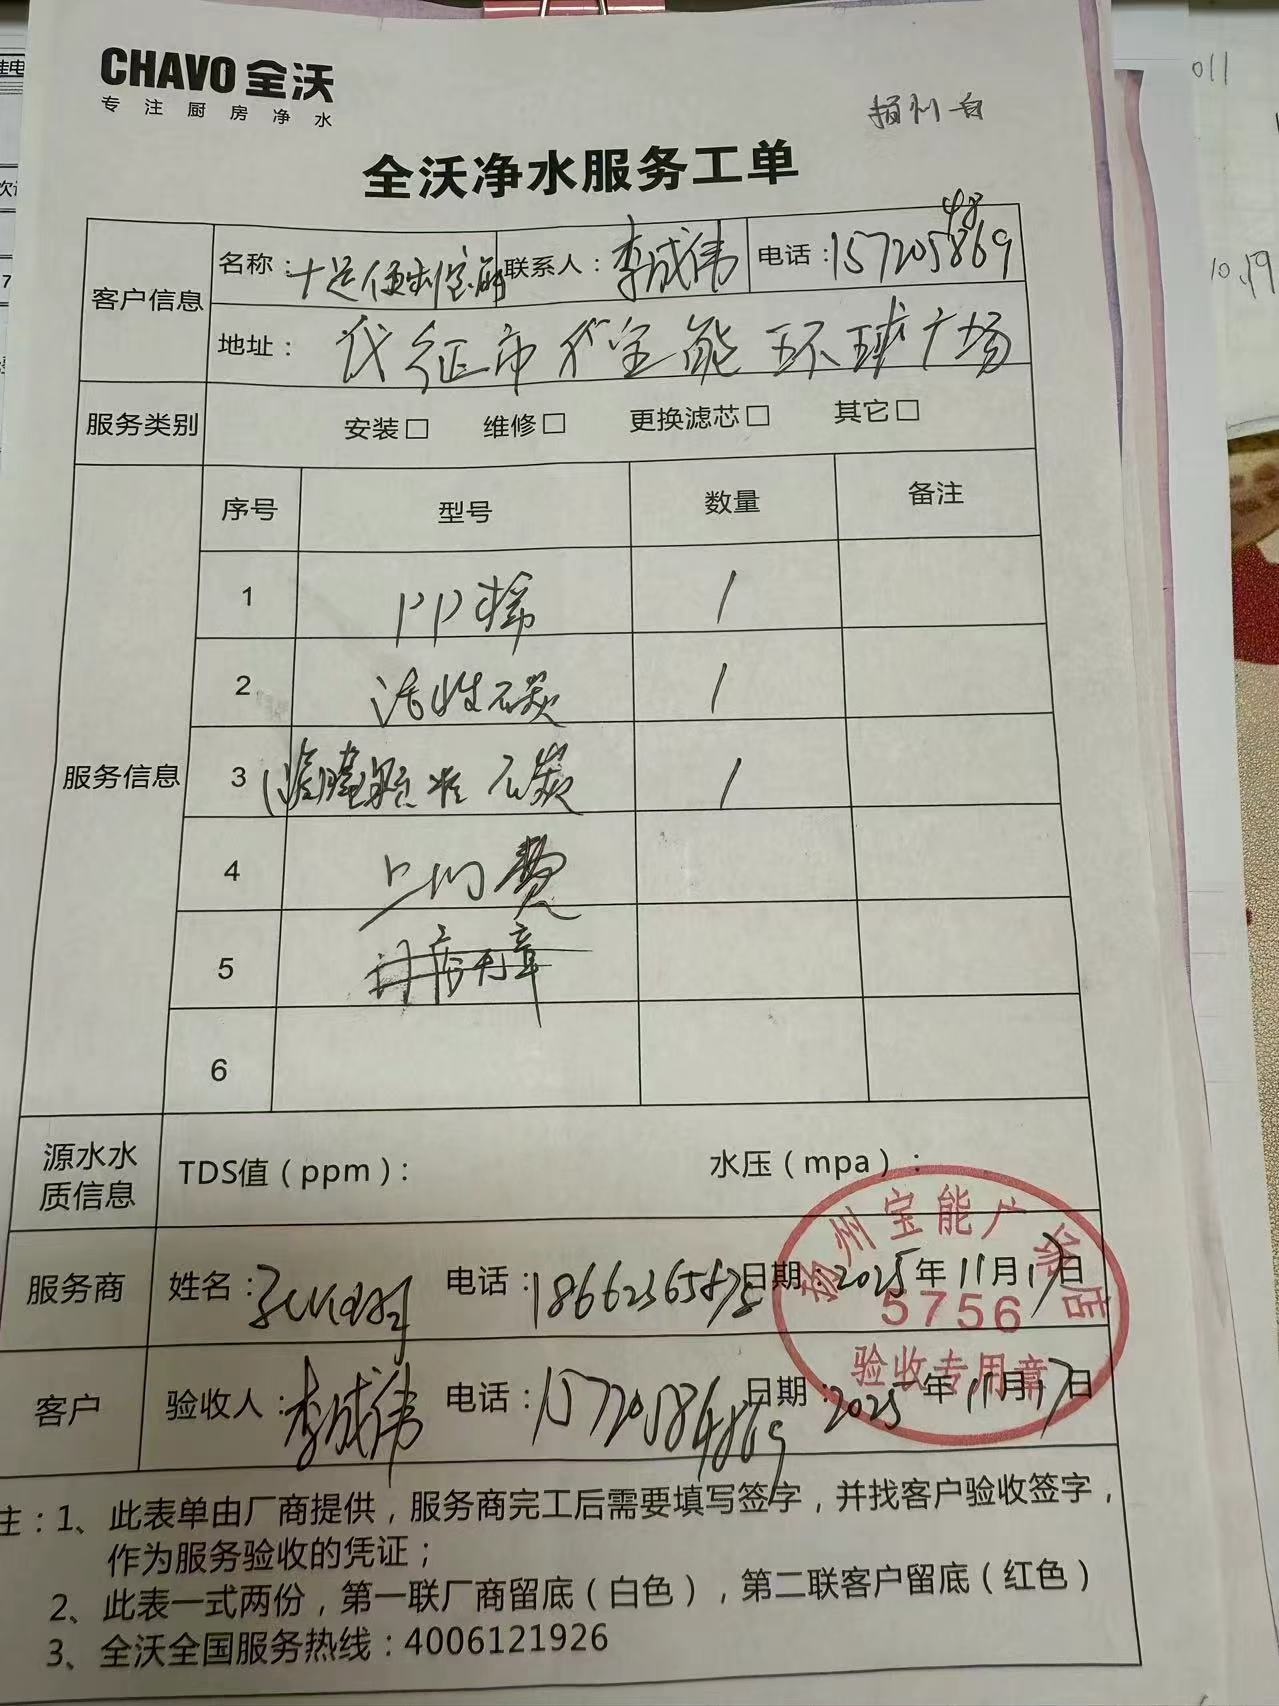 CHAVO 全沃
专注厨房净水
全沃净水服务工单
客户信息
名称：
联系人：李成伟
电话：15720584869
地址：仪征市 宝能环球广场
服务类别
安装□ 维修□ 更换滤芯□ 其它□
服务信息
序号 型号 数量 备注
1 PP棉 1
2 活性碳 1
3 碳 1
4 上门费
5
6
源水水质信息
TDS值（ppm）：
水压（mpa）：
服务商
姓名：
电话：
日期：2025年11月17日
客户
验收人：李成伟
电话：15720584869
日期：2025年11月17日
扬州宝能广场店
5756
验收专用章
注：1、此表单由厂商提供，服务商完工后需要填写签字，并找客户验收签字，
作为服务验收的凭证；
2、此表一式两份，第一联厂商留底（白色），第二联客户留底（红色）
3、全沃全国服务热线：4006121926
011
10.19